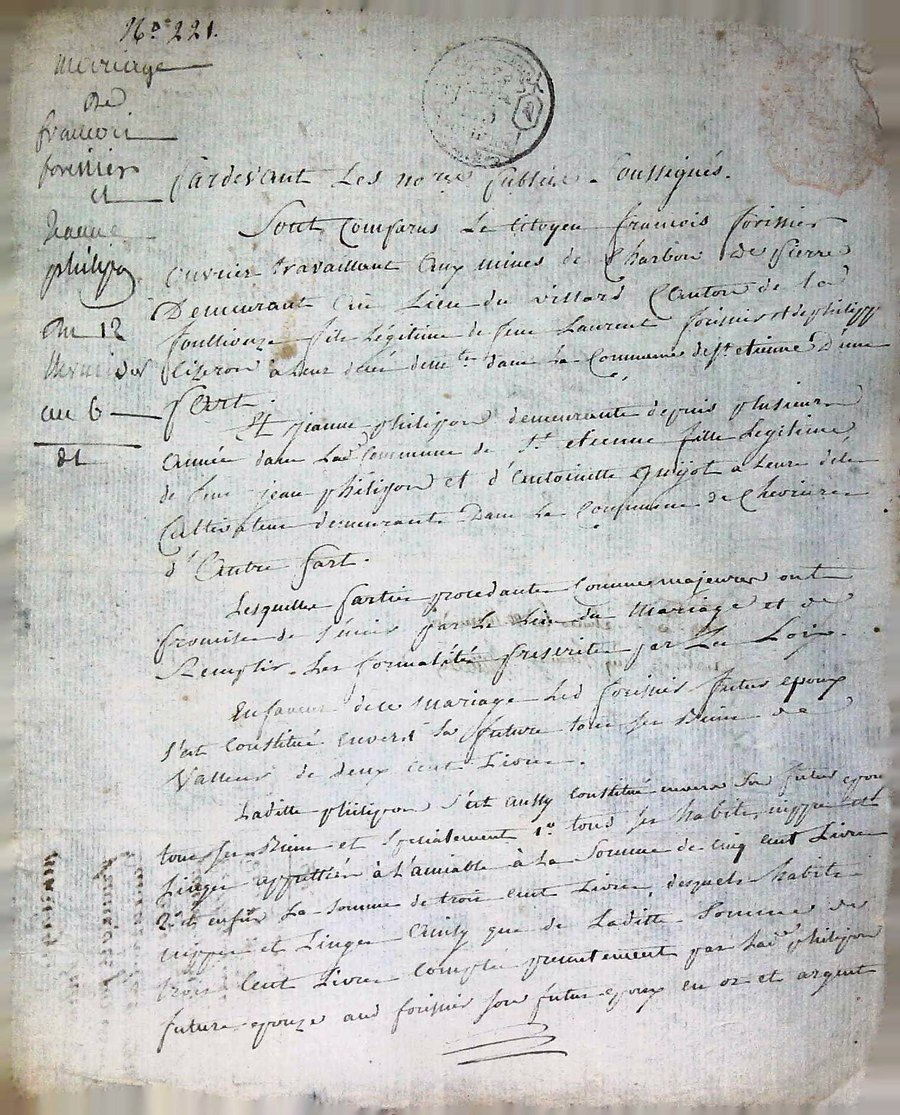 N.º 221.
mariage
De
francois
forissier
et
Jeanne
philipon
Du 12
au 6
dt
Pardevant Les no.res Publics Soussignés.
Sont Comparus Le Citoyen francois forissier
ouvrier travaillant aux mines de Charbon De Pierre
Demeurant au Lieu du villard Canton de la
fouillouze fils Légitime de feu Laurent forissier et de philippe
à leur décé dem.te dans La Commune de St etienne D'une
Part.
Et jeanne philipon demeurante depuis plusieurs
année dans Lad. Commune de St etienne fille Legitime
de feu jean philipon et d'antoinette guijot a leurs décé
Cultivateur demeurants Dans La Commune de Chevriere
d'autre Part.
Lesquelles Parties procedantes Comme majeures ont
Promise de s'unir par Le Lien du Mariage et de
Remplir Les formalités Prescrite par La Loix.
En faveur du Mariage Led forissier futur epoux
s'est Constitué envers sa future tous ses Biens de
Valleur de deux Cent Livres.
Laditte philipon s'est aussy Constitué envers Son futur epoux
tous ses Biens et Specialement 1.º tous ses habits, nippes et
Linges à L'amiable à La Somme de Cinq Cent Livres
2.º et enfin La Somme de trois Cent Livres, desquels habits
nippes et Linges ainsy que de Laditte Somme de
trois Cent Livres Comptée presentement par Lad. philipon
future epouze aud forissier son futur epoux en or et argent